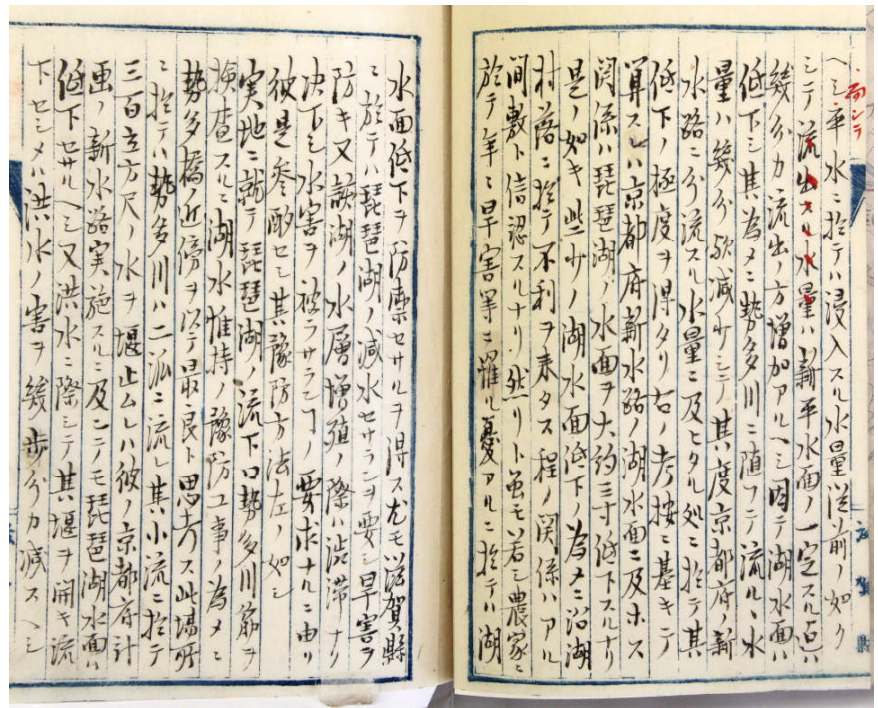 而シテ
ヘシ平水ニ於テハ浸入スル水量従前ノ如ク
シテ流出スル水量ハ新平水面ノ一定スル迠ハ
幾分カ流出ノ方増加アルヘシ因テ湖水面ハ
低下シ其為メニ勢多川ニ随フテ流ルヽ水
量ハ幾分歟減少ケシテ其度京都府ノ新
水路ニ分流スル水量ニ及ヒタル処ニ於テ其
低下ノ極度ヲ得タリ右ノ考按ニ基キテ
算スレハ京都府新水路ノ湖水面ニ及ホス
関係ハ琵琶湖ノ水面ヲ大約三寸低下スルナリ
是ノ如キ些少ノ湖水面低下ノ為メニ沿湖
村落ニ於テ不利ヲ来タス程ノ関係ハアル
間敷ト信認スルナリ然リト雖モ若シ農家ニ
於テ年々旱害等ニ罹ル憂アルニ於テハ湖
滋賀縣
水面低下ヲ防禦セサルヲ得ス尤モ滋賀縣
ニ於テハ琵琶湖ノ減水セサランヲ要シ旱害ヲ
防キ又該湖ノ水層増殖ノ際ハ渋滞ナリ
決下シ水害ヲ被ラサランヿノ要求ナルニ由リ
彼是参酌セシ其豫防方法左ノ如シ
実地ニ就テ琵琶湖ノ流下口勢多川筋ヲ
検査スルニ湖水惟持ノ豫防工事ノ為メニ
勢多橋ノ近傍ヲ以テ最良ト思考ス此場所
ニ於テハ勢多川ハ二派ニ流レ其小流ニ於テ
三百立方尺ノ水ヲ堰止ムレハ彼ノ京都府計
画ノ新水路実施スルニ及ンテモ琵琶湖水面ハ
低下セサルヘシ又洪水ニ際シテ其堰ヲ開キ流
下セシメハ洪水ノ害ヲ幾歩分カ減スヘシ